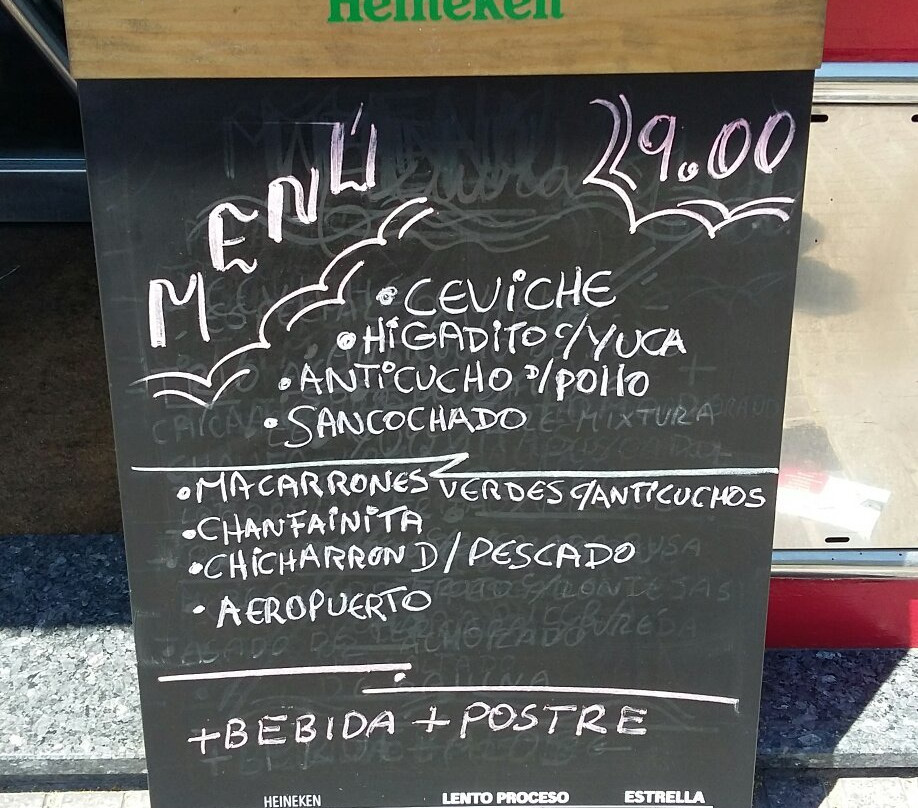 Heineken
MENÚ
9.00
• CEViCHE
• HiGADiTO C/YUCA
• ANTiCUCHO D/POllO
• SANCOCHADO
MIXTURA
• MACARRONES VERDES C/ANTICUCHOS
• CHANFAiNiTA
• CHiCHARRON D/PESCADO
• AEROPUERTO
+BEBIDA +POSTRE
HEINEKEN LENTO PROCESO ESTRELLA